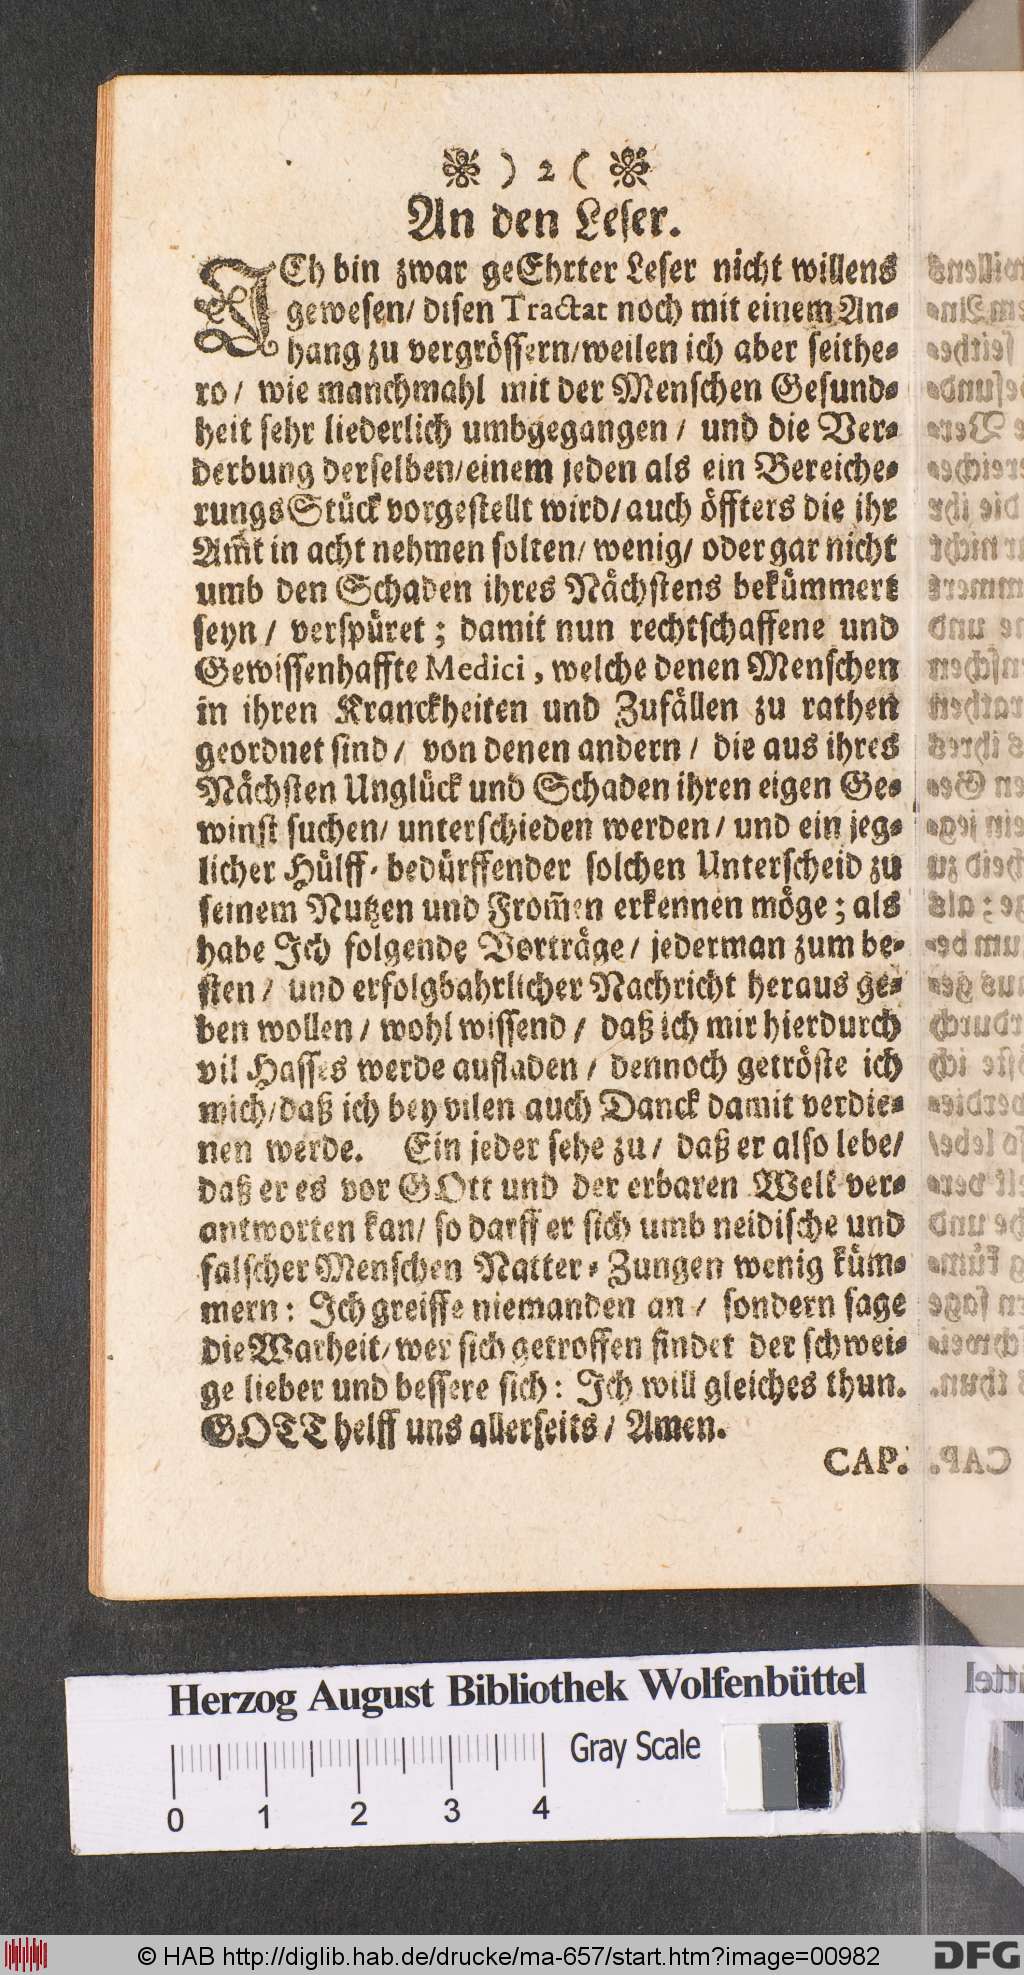 ) 2 (
An den Leser.
JCh bin zwar geEhrter Leser nicht willens
gewesen/ disen Tractat noch mit einem An-
hang zu vergrössern/weilen ich aber seithe-
ro/ wie manchmahl mit der Menschen Gesund-
heit sehr liederlich umbgegangen/ und die Ver-
derbung derselben/einem jeden als ein Bereiche-
rungs Stück vorgestellt wird/auch öffters die ihr
Am̃t in acht nehmen solten/ wenig/ oder gar nicht
umb den Schaden ihres Nächstens bekümmert
seyn/ verspüret; damit nun rechtschaffene und
Gewissenhaffte Medici, welche denen Menschen
in ihren Kranckheiten und Zufällen zu rathen
geordnet sind/ von denen andern/ die aus ihres
Nächsten Unglück und Schaden ihren eigen Ge-
winst suchen/ unterschieden werden/ und ein jeg-
licher Hülff-bedürffender solchen Unterscheid zu
seinem Nutzen und From̃en erkennen möge; als
habe Jch folgende Vorträge/ jederman zum be-
sten/ und erfolgbahrlicher Nachricht heraus ge-
ben wollen/ wohl wissend/ daß ich mir hierdurch
vil Hasses werde aufladen/ dennoch getröste ich
mich/daß ich bey vilen auch Danck damit verdie-
nen werde. Ein jeder sehe zu/ daß er also lebe/
daß er es vor GOtt und der erbaren Welt ver-
antworten kan/ so darff er sich umb neidische und
falscher Menschen Natter-Zungen wenig küm-
mern: Jch greiffe niemanden an/ sondern sage
die Warheit/ wer sich getroffen findet der schwei-
ge lieber und bessere sich: Jch will gleiches thun.
GOTT helff uns allerseits/ Amen.
CAP.
Herzog August Bibliothek Wolfenbüttel
Gray Scale
0 1 2 3 4
© HAB http://diglib.hab.de/drucke/ma-657/start.htm?image=00982
DFG